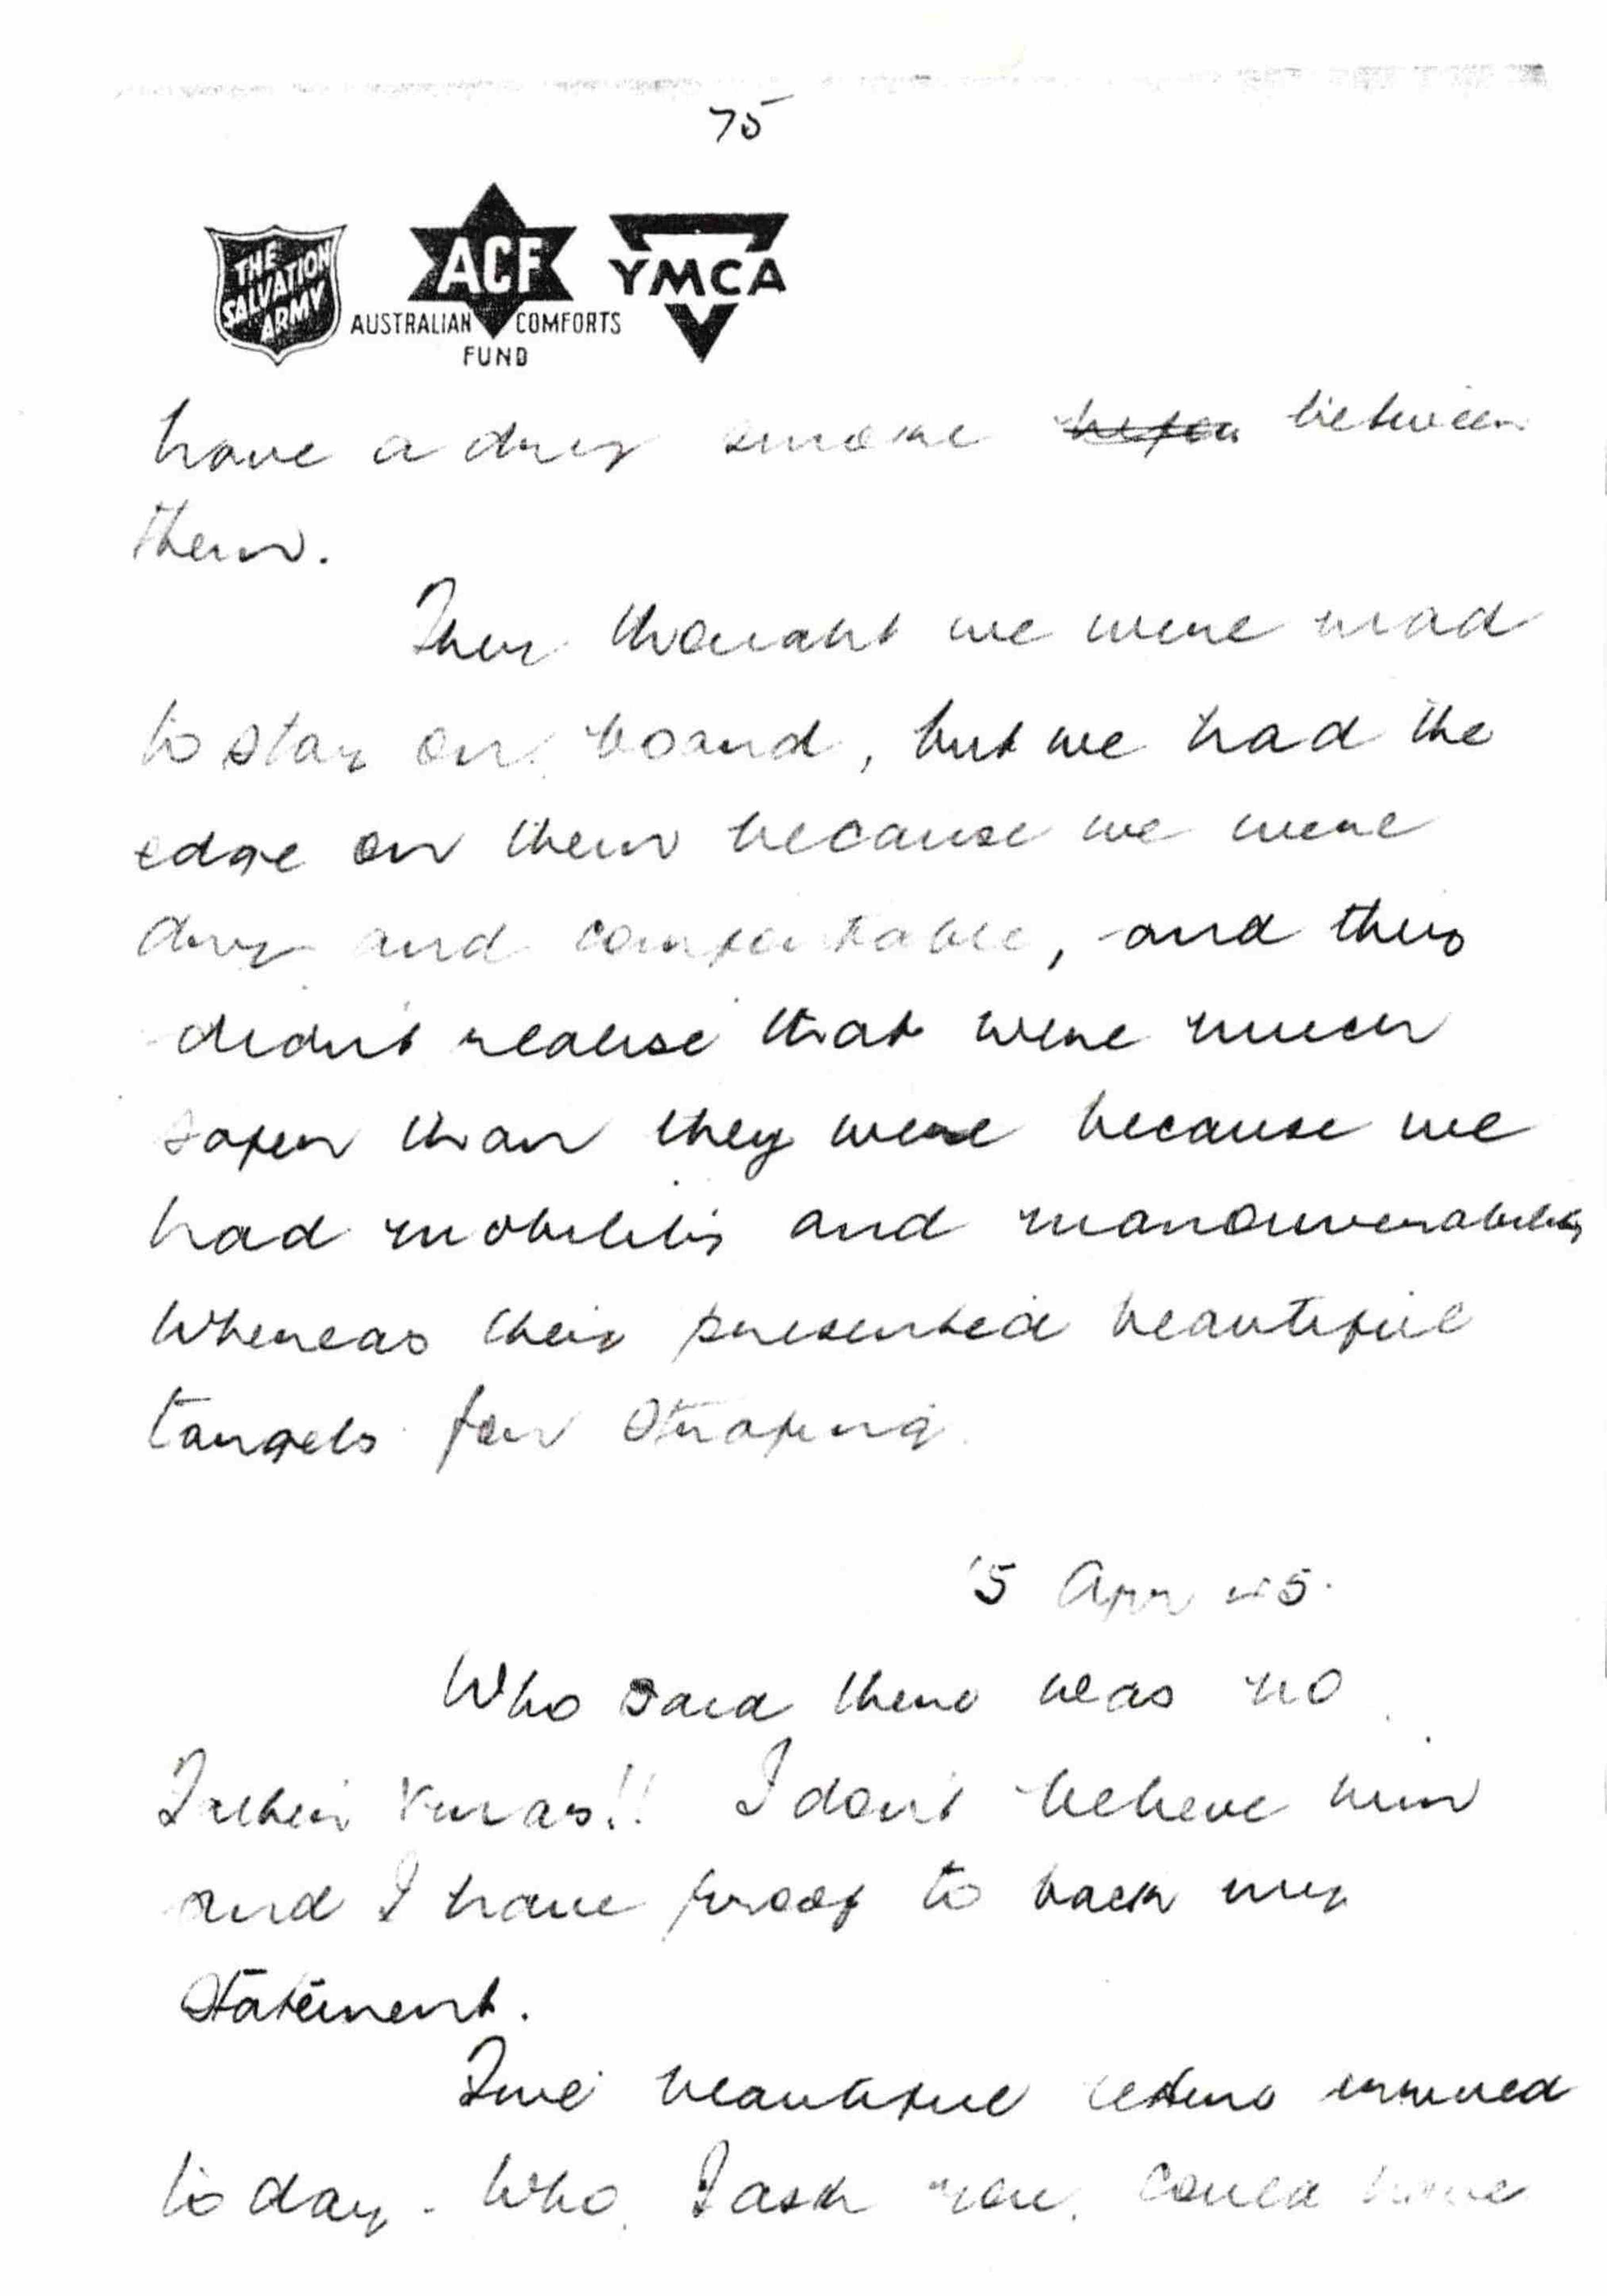 75
THE SALVATION ARMY
ACF
AUSTRALIAN COMFORTS FUND
YMCA
have a dry smoke between
them.
They thought we were mad
to stay on board, but we had the
edge on them because we were
dry and comfortable, and they
didn't realise that were much
safer than they were because we
had mobility and manouverability
Whereas they presented beautiful
targets for strafing.
5 Apr 45.
Who said there was no
Father Xmas!! I don't believe him
and I have proof to back my
statement.
Five beautiful letters arrived
today. Who, I ask you, could have